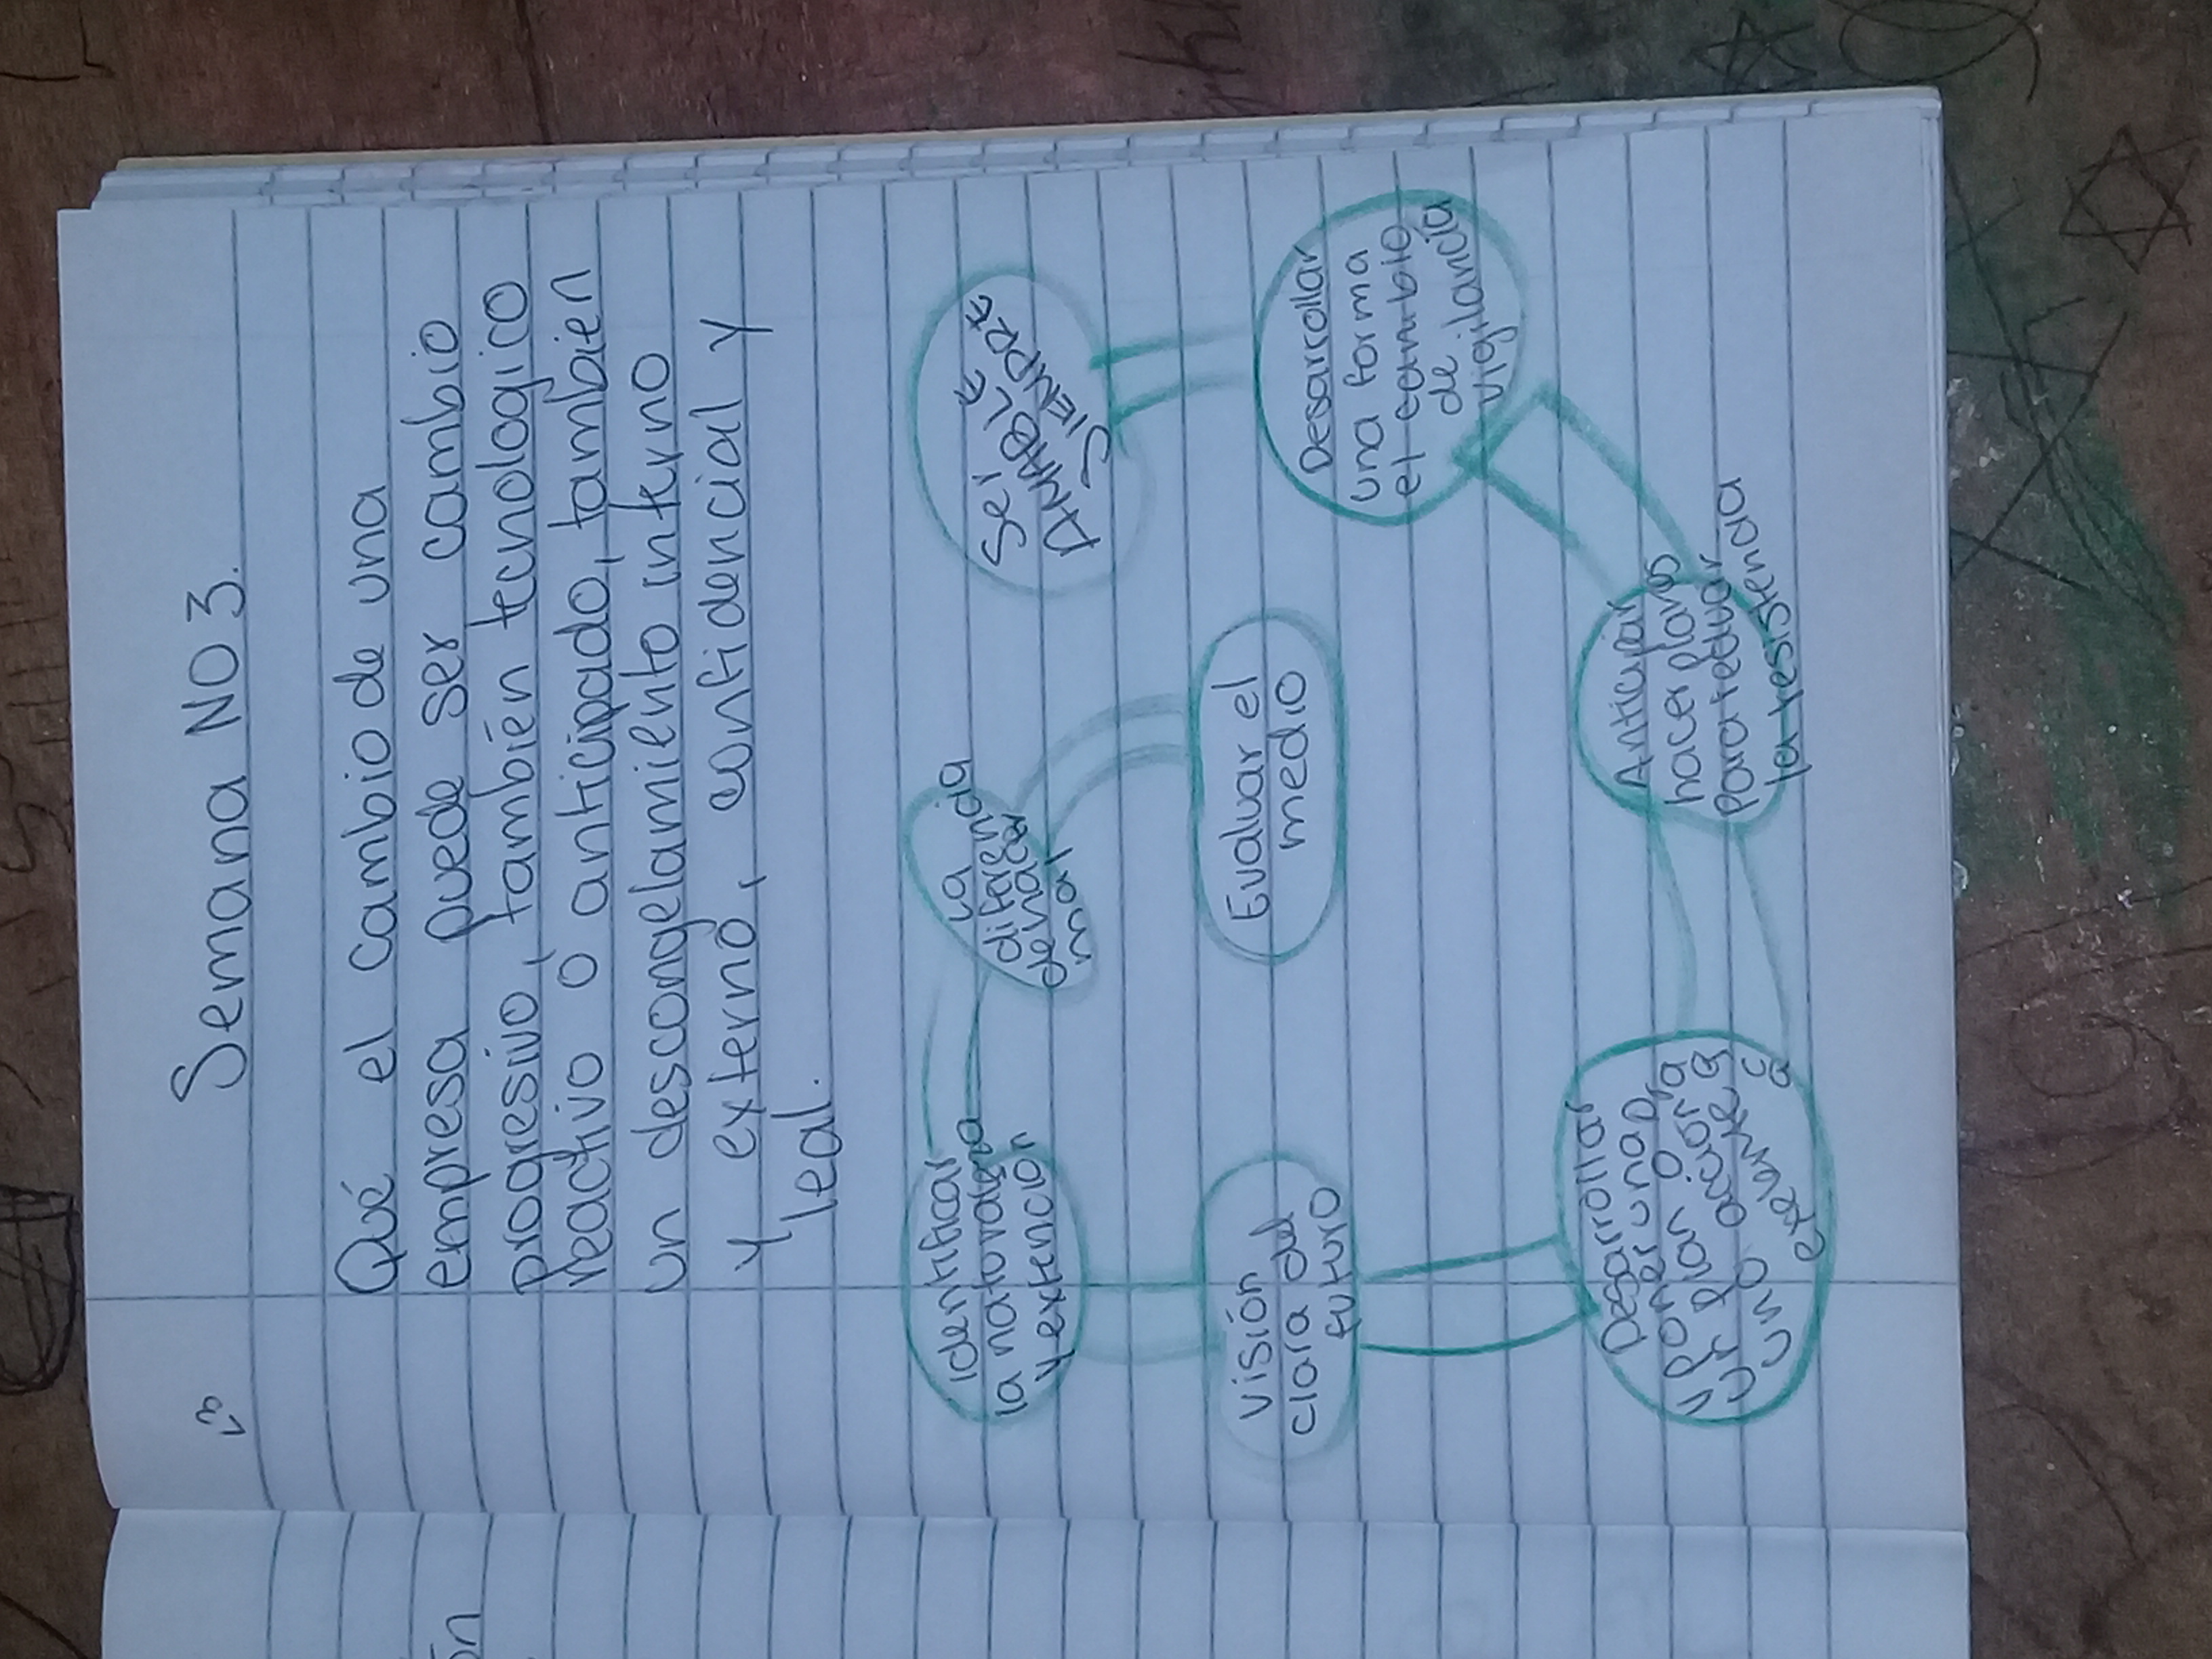 Semana NO 3.
Qué el cambio de una
empresa puede ser cambio
progresivo, también tecnologico
reactivo o anticipado, tambien
un descongelamiento interno
y externo, confidencial y
leal.
Identificar
la naturaleza
y extención
La
diferencia
del hacer
mal
Ser
AMABLE
SIEMPRE
Visión
clara del
futuro
Evaluar el
medio
Desarrollar
una forma
el cambio
de
vigilancia
Desarrollar
y poner una
un plan o
una acción
Anticipar
hacer planes
para reducir
la resistencia
ón